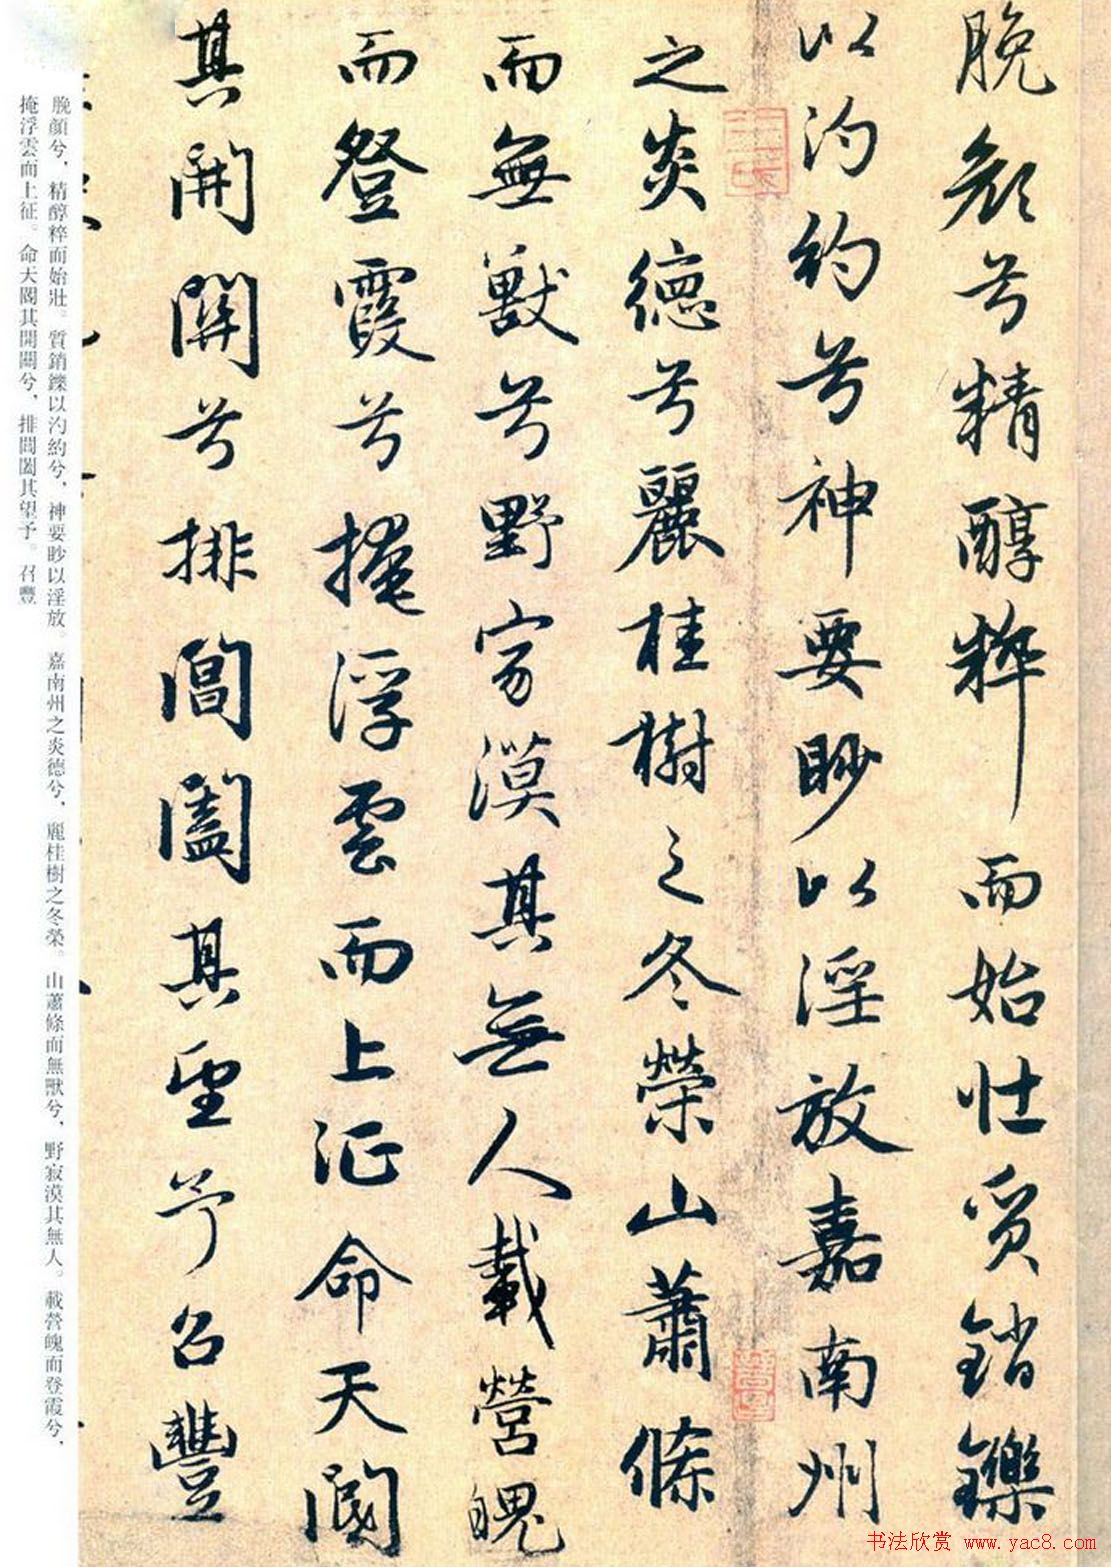 脕顔兮精醇粹而始壯質銷鑠
以汋約兮神要眇以淫放嘉南州
之炎德兮麗桂樹之冬榮山蕭條
而無獸兮野寂漠其無人載營魄
而登霞兮掩浮雲而上征命天閽
其開關兮排閶闔其望予召豐
脕顔兮，精醇粹而始壯。質銷鑠以汋約兮，神要眇以淫放。嘉南州之炎德兮，麗桂樹之冬榮。山蕭條而無獸兮，野寂漠其無人。載營魄而登霞兮，
掩浮雲而上征。命天閽其開關兮，排閶闔其望予。召豐
书法欣赏 www.yac8.com